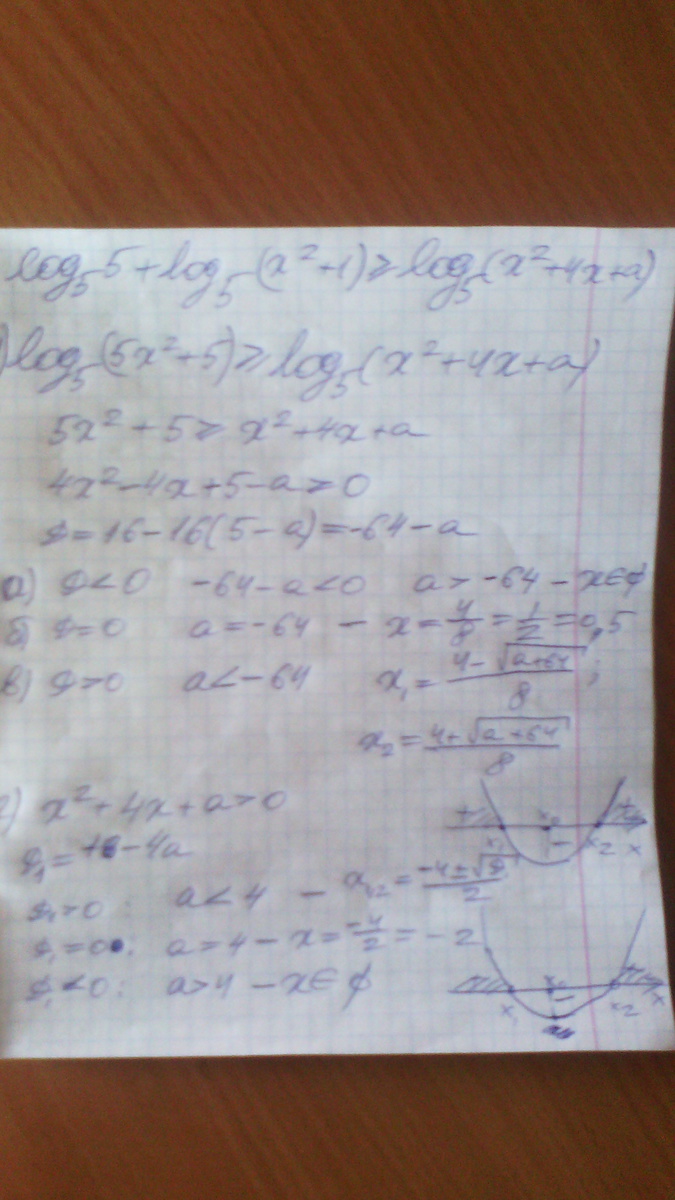 log₅5 + log₅(x² + 1) ⩾ log₅(x² + 4x + a)
) log₅(5x² + 5) ⩾ log₅(x² + 4x + a)
5x² + 5 ⩾ x² + 4x + a
4x² - 4x + 5 - a ⩾ 0
D = 16 - 16(5 - a) = -64 - a
а) D < 0 -64 - a < 0 a > -64 - x ∈ ∅
б) D = 0 a = -64 - x = 4/8 = 1/2 = 0,5
в) D > 0 a < -64 x₁ = (4 - √(a + 64))/8 ;
x₂ = (4 + √(a + 64))/8
2) x² + 4x + a > 0
D₁ = 16 - 4a
D₁ > 0 : a < 4 - x₁,₂ = (-4 ± √D)/2
D₁ = 0 : a = 4 - x = -4/2 = -2
D₁ < 0 : a > 4 - x ∈ ∅
+ x₁ x₀ - x₂ + x
x₁ x₀ - x₂ x